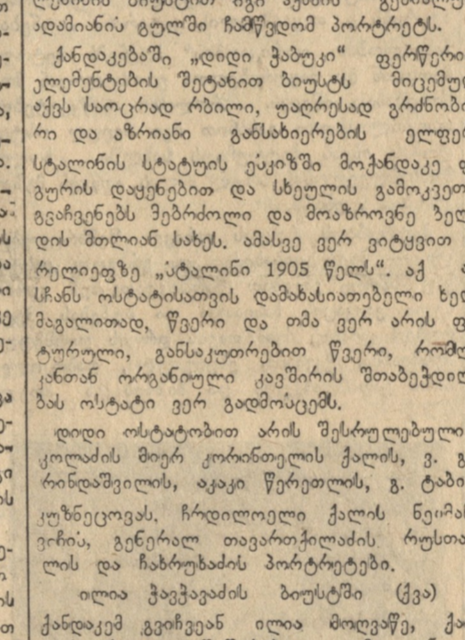 ადამიანის გულში ჩამწვდომ პორტრეტს.
ქანდაკებაში „დიდი ჭაბუკი“ ფერწერი
ელემენტების შეტანით ბიუსტს მიცემუ
აქვს საოცრად რბილი, უაღრესად გრძნობი
რი და აზრიანი განსახიერების ელფე
სტალინის სტატუის ესკიზში მოქანდაკე ფ
გურის დაყენებით და სხეულის გამოკვეთ
გვაჩვენებს მებრძოლი და მოაზროვნე ბელ
დის მთლიან სახეს. ამასვე ვერ ვიტყვით
რელიეფზე „სტალინი 1905 წელს“. აქ
სჩანს ოსტატისათვის დამახასიათებელი ხე
მაგალითად, წვერი და თმა ვერ არის ფ
ტურული, განსაკუთრებით წვერი, რომლ
კანთან ორგანიული კავშირის შთაბეჭდილ
ბას ოსტატი ვერ გადმოსცემს.
დიდი ოსტატობით არის შესრულებული
კოლაძის მიერ კორინთელის ქალის, ვ. გ
რინდაშვილის, აკაკი წერეთლის, გ. ტაბი
კუზნეცოვას, ჩრდილოელი ქალის ნეიმა
ვიჩის, გენერალ თავართქილაძის რუსთა
ლის და ჩახრუხაძის პორტრეტები.
ილია ჭავჭავაძის ბიუსტში (ქვა)
ქანდაკემ გვიჩვეან ილია მოღვაწე, ქა